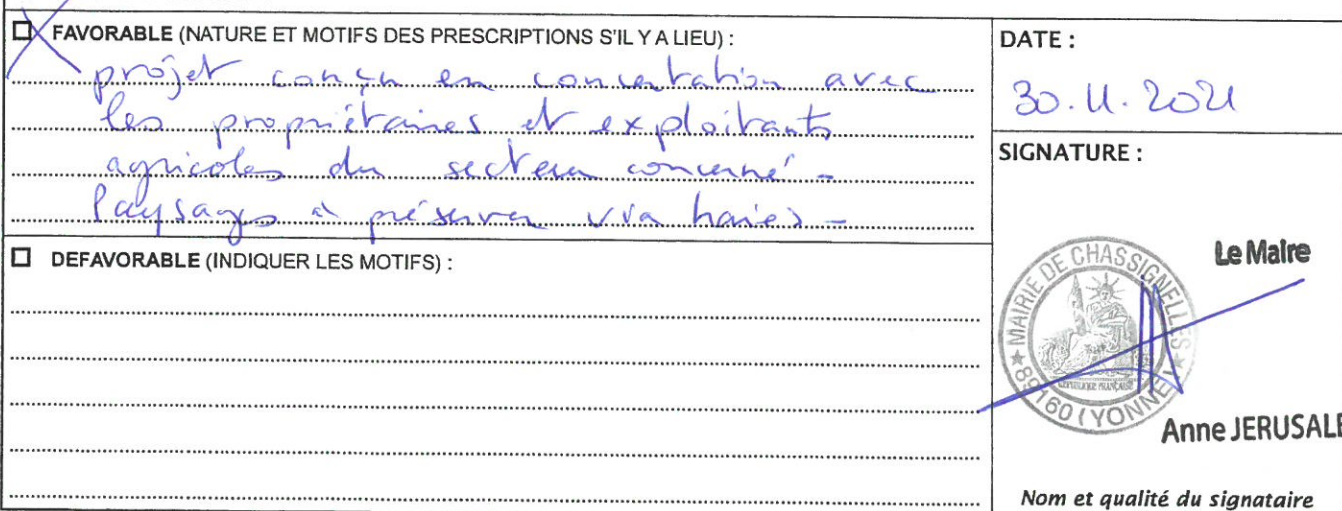 FAVORABLE (NATURE ET MOTIFS DES PRESCRIPTIONS S'IL Y A LIEU) :
projet conçu en concertation avec
les propriétaires et exploitants
agricoles du secteur concerné -
Paysages à préserver via haies -
DEFAVORABLE (INDIQUER LES MOTIFS) :
DATE :
30.11.2021
SIGNATURE :
Le Maire
MAIRIE DE CHASSIGNELLES
RÉPUBLIQUE FRANÇAISE
★ 89160 (YONNE) ★
Anne JERUSALE
Nom et qualité du signataire